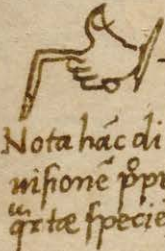 Nota hāc di
uisionē p̄pri
qr̄tæ speciē